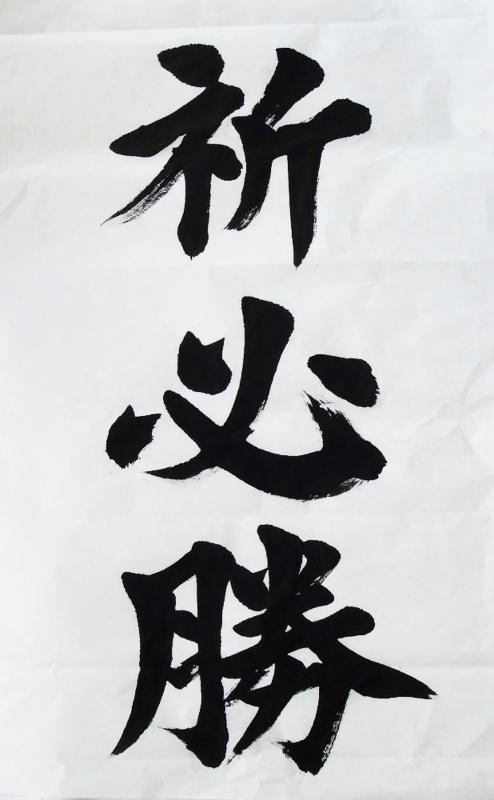 祈必勝